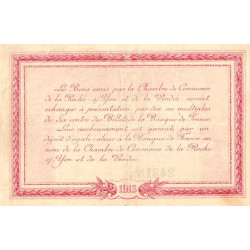 Les Bons émis par la Chambre de Commerce
de la Roche-s/-Yon et de la Vendée seront
échangés à présentation, par dix ou multiples
de dix contre des Billets de la Banque de France.
Leur remboursement est garanti par un
dépôt d'égale valeur à la Banque de France
au nom de la Chambre de Commerce de la Roche
s/-Yon et de la Vendée.
1915